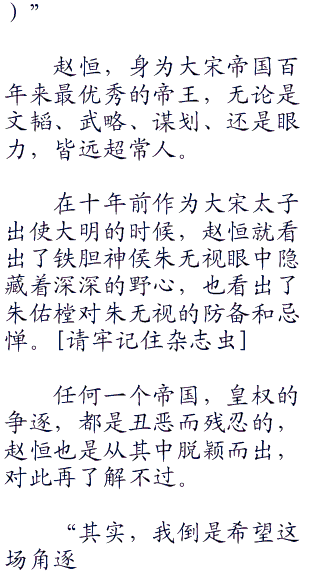 ）”
赵恒，身为大宋帝国百
年来最优秀的帝王，无论是
文韬、武略、谋划、还是眼
力，皆远超常人。
在十年前作为大宋太子
出使大明的时候，赵恒就看
出了铁胆神侯朱无视眼中隐
藏着深深的野心，也看出了
朱佑樘对朱无视的防备和忌
惮。[请牢记住杂志虫]
任何一个帝国，皇权的
争逐，都是丑恶而残忍的，
赵恒也是从其中脱颖而出，
对此再了解不过。
“其实，我倒是希望这
场角逐